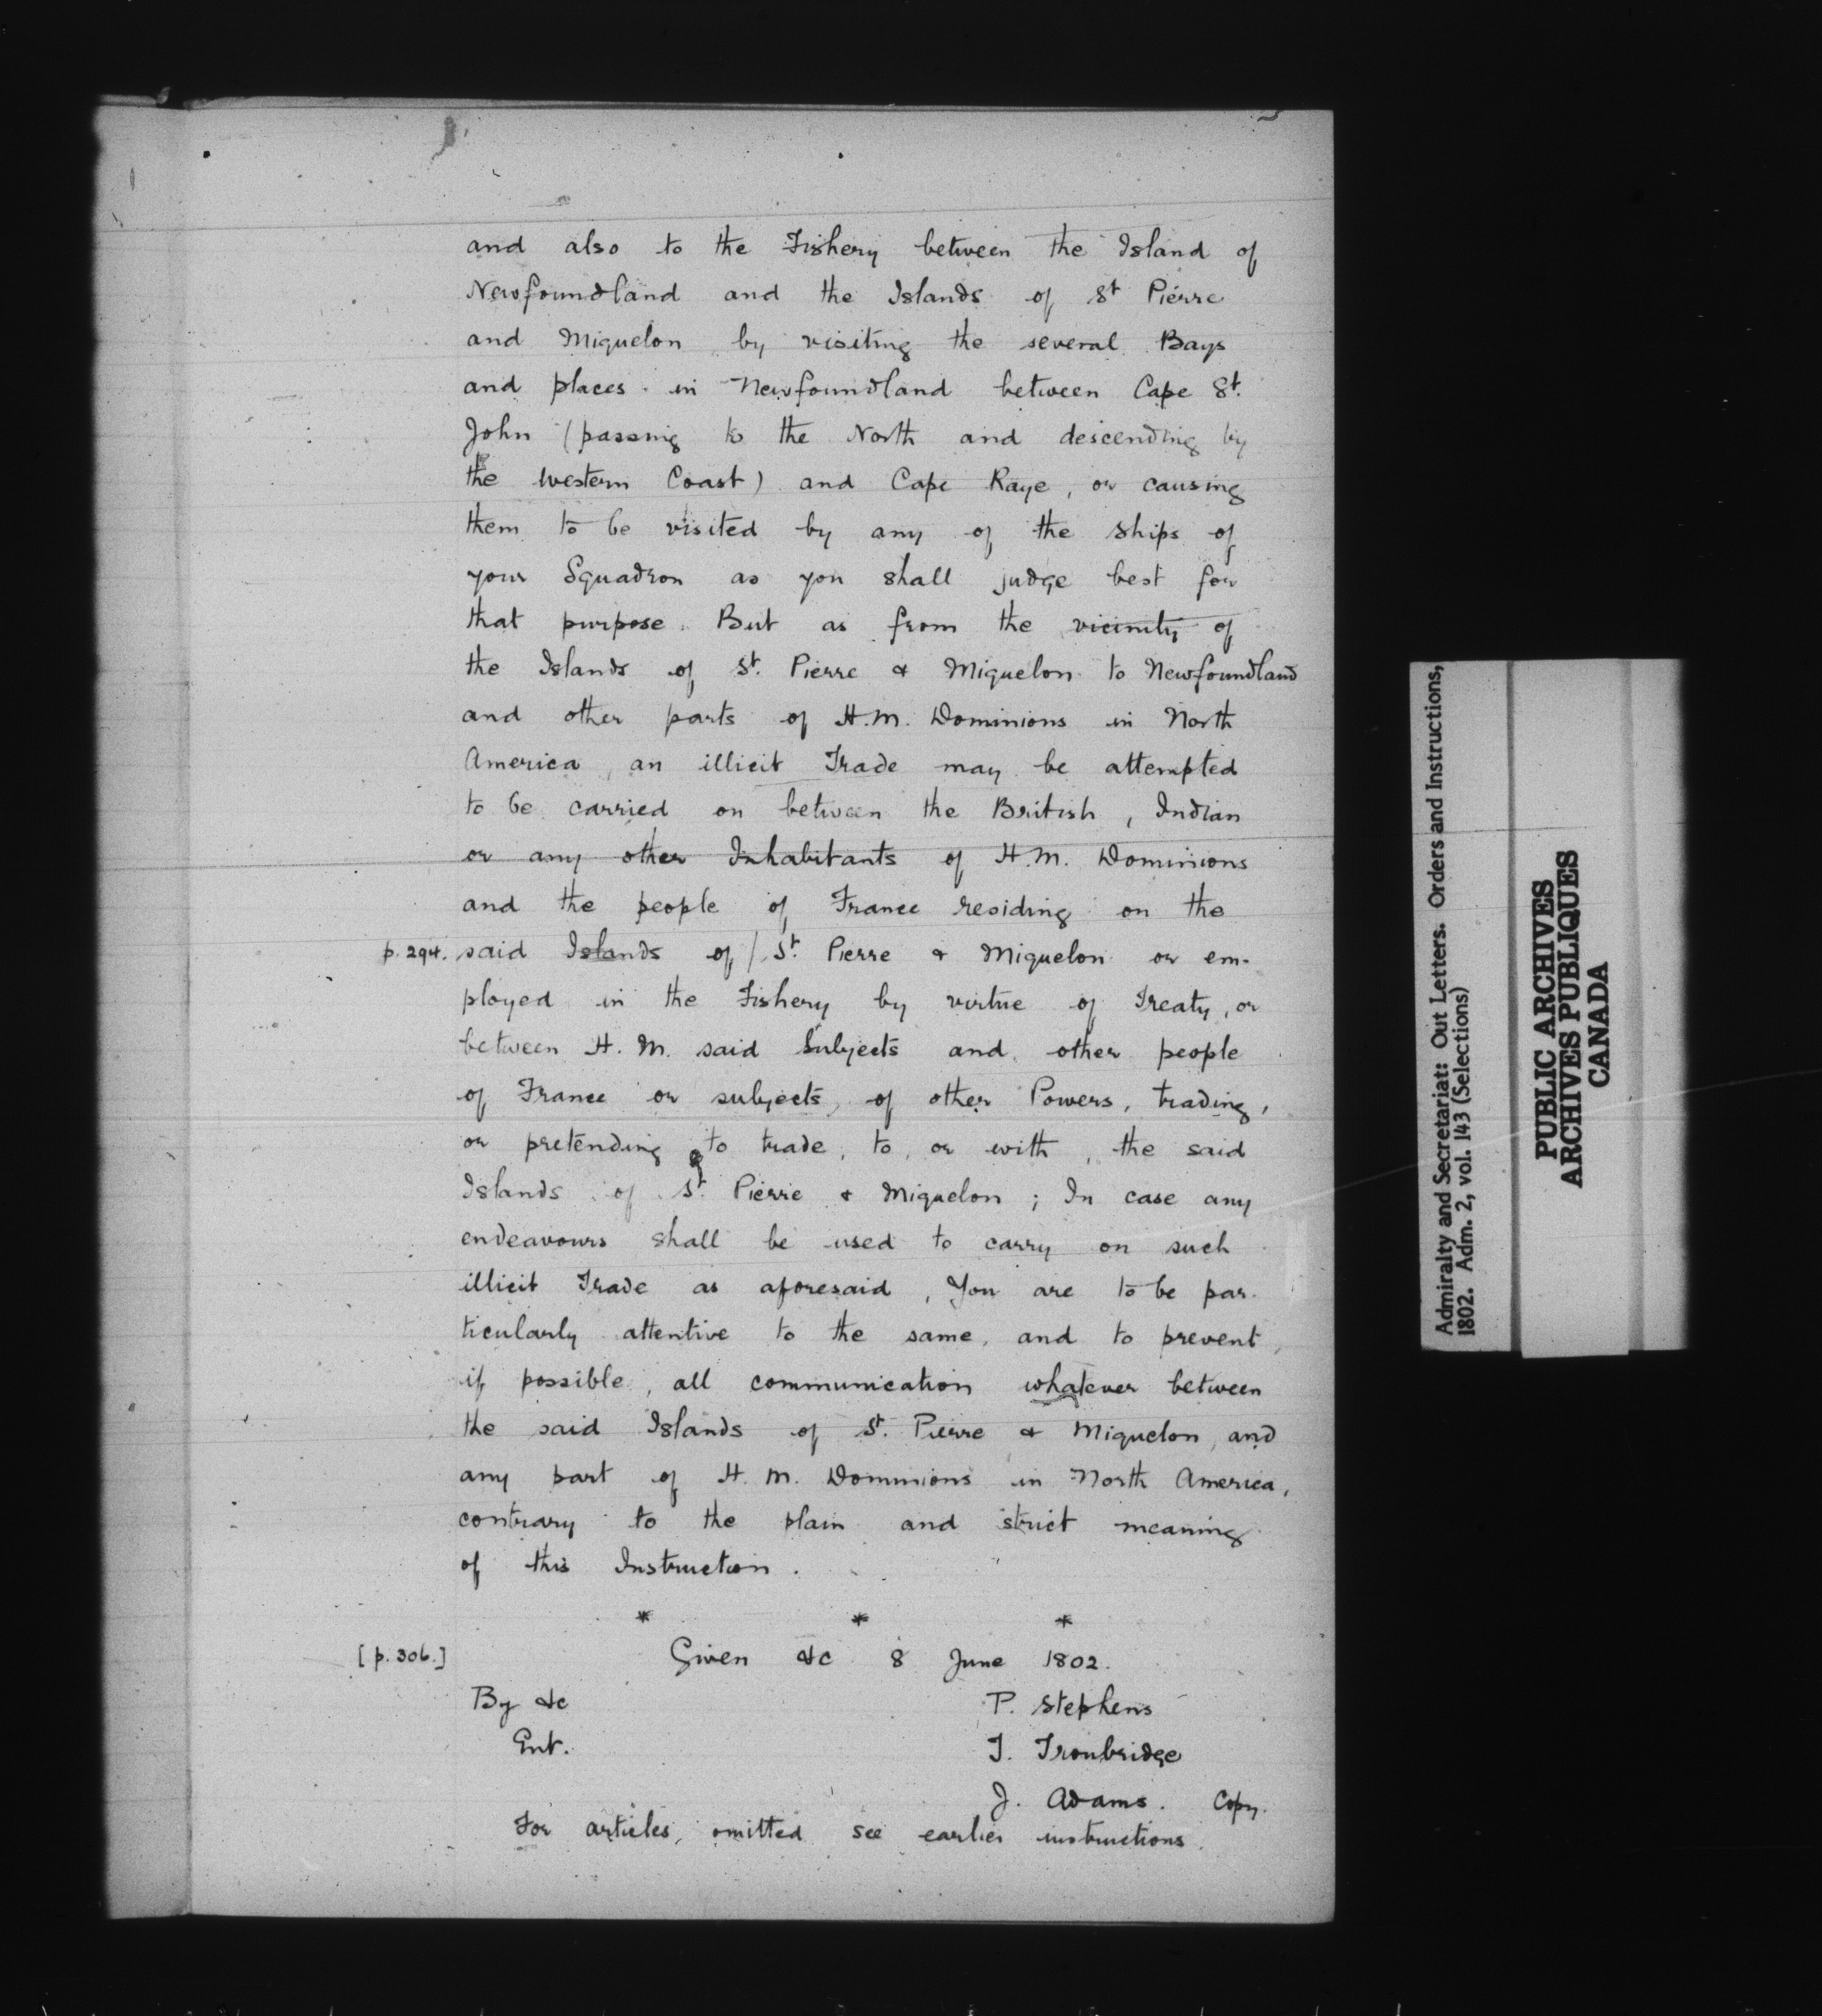 and also to the Fishery between the Island of
Newfoundland and the Islands of St Pierre
and Miquelon by visiting the several Bays
and places in Newfoundland between Cape St.
John (passing to the North and descending by
the Western Coast) and Cape Raye, or causing
them to be visited by any of the ships of
your Squadron as you shall judge best for
that purpose. But as from the vicinity of
the Islands of St. Pierre & Miquelon to Newfoundland
and other parts of H.M. Dominions in North
America, an illicit Trade may be attempted
to be carried on between the British, Indian
or any other Inhabitants of H.M. Dominions
and the people of France residing on the
p. 294. said Islands of / St. Pierre & Miquelon or em-
ployed in the Fishery by virtue of Treaty, or
between H. M. said Subjects and other people
of France or subjects, of other Powers, trading,
or pretending to trade, to, or with, the said
Islands of St. Pierre & Miquelon; In case any
endeavours shall be used to carry on such
illicit Trade as aforesaid, You are to be par-
ticularly attentive to the same, and to prevent,
if possible, all communication whatever between
the said Islands of St. Pierre & Miquelon, and
any part of H. M. Dominions in North America,
contrary to the plain and strict meaning
of this Instruction.
* * *
[p. 306.] Given &c 8 June 1802.
By &c P. Stephens
Ent. T. Troubridge
J. Adams. Copy.
For articles, omitted see earlier instructions.
Admiralty and Secretariat: Out Letters. Orders and Instructions,
1802. Adm. 2, vol. 143 (Selections)
PUBLIC ARCHIVES
ARCHIVES PUBLIQUES
CANADA